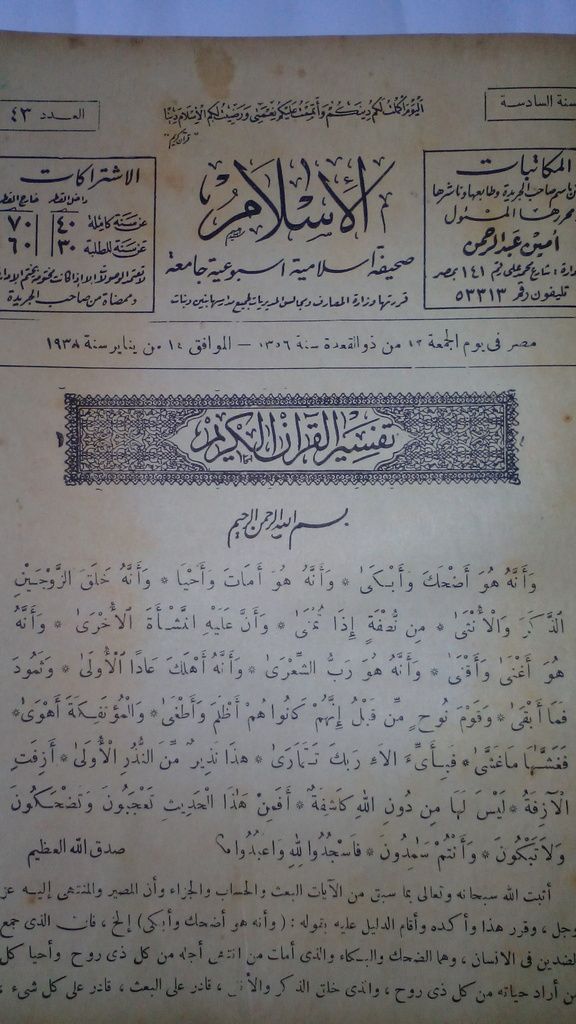 السنة السادسة
اليوم أكملت لكم دينكم وأتممت عليكم نعمتي ورضيت لكم الإسلام دينا
قرآن كريم
العدد ٤٣
المكاتبات
باسم صاحب الجريدة وطابعها وناشرها
ومحررها المسئول
أمين عبد الرحمن
شارع محمد علي رقم ١٤١ بمصر
تليفون رقم ٥٣٣١٣
الإسلام
صحيفة اسلامية اسبوعية جامعة
قررتها وزارة المعارف ومجالس المديريات لجميع مدارسها بنين وبنات
الاشتراكات
داخل القطر خارج القطر
عن سنة كاملة ٤٠ ٧٠
عن سنة للطلبة ٣٠ ٦٠
وممضاة من صاحب الجريدة
مصر في يوم الجمعة ١٢ من ذو القعدة سنة ١٣٥٦ — الموافق ١٤ من يناير سنة ١٩٣٨
تفسير القرآن الكريم
بسم الله الرحمن الرحيم
وَأَنَّهُ هُوَ أَضْحَكَ وَأَبْكَىٰ * وَأَنَّهُ هُوَ أَمَاتَ وَأَحْيَا * وَأَنَّهُ خَلَقَ الزَّوْجَيْنِ
الذَّكَرَ وَالْأُنْثَىٰ * مِن نُّطْفَةٍ إِذَا تُمْنَىٰ * وَأَنَّ عَلَيْهِ النَّشْأَةَ الْأُخْرَىٰ * وَأَنَّهُ
هُوَ أَغْنَىٰ وَأَقْنَىٰ * وَأَنَّهُ هُوَ رَبُّ الشِّعْرَىٰ * وَأَنَّهُ أَهْلَكَ عَادًا الْأُولَىٰ * وَثَمُودَ
فَمَا أَبْقَىٰ * وَقَوْمَ نُوحٍ مِّن قَبْلُ إِنَّهُمْ كَانُوا هُمْ أَظْلَمَ وَأَطْغَىٰ * وَالْمُؤْتَفِكَةَ أَهْوَىٰ *
فَغَشَّاهَا مَاغَشَّىٰ * فَبِأَىِّ الاَءِ رَبِّكَ تَتَمَارَىٰ * هٰذَا نَذِيرٌ مِّنَ النُّذُرِ الْأُولَىٰ * أَزِفَتِ
الْآزِفَةُ * لَيْسَ لَهَا مِن دُونِ اللهِ كَاشِفَةٌ * أَفَمِنْ هٰذَا الْحَدِيثِ تَعْجَبُونَ وَتَضْحَكُونَ
وَلَا تَبْكُونَ * وَأَنْتُمْ سَٰمِدُونَ * فَاسْجُدُوا لِلهِ وَاعْبُدُوا صدق الله العظيم
أثبت الله سبحانه وتعالى بما سبق من الآيات البعث والحساب والجزاء وأن المصير والمنتهى إليه عز
وجل ، وقرر هذا وأكده وأقام الدليل عليه بقوله : ( وأنه هو أضحك وأبكى ) إلخ ، فان الذى جمع
الضدين فى الانسان ، وهما الضحك والبكاء والذى أمات من انتهى أجله من كل ذى روح وأحيا كل
من أراد حياته من كل ذى روح ، والذى خلق الذكر والأنثى ، قادر على البعث ، قادر على كل شىء ،